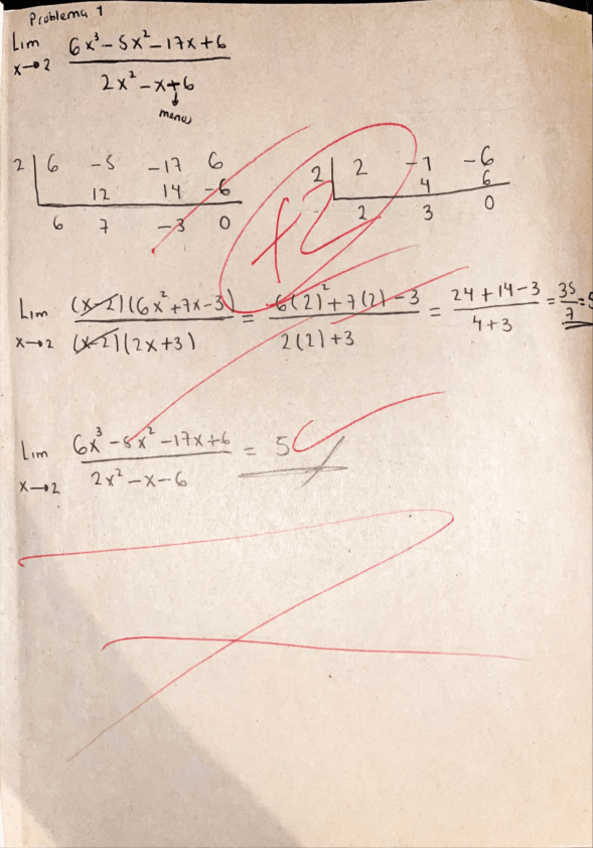 Problema 1
Lim x→2 6x³ - 5x² - 17x + 6 / 2x² - x + 6
↓
menos
2 | 6 -5 -17 6
12 14 -6
6 7 -3 0
2 | 2 -1 -6
4 6
2 3 0
+2
Lim x→2 (x-2)(6x²+7x-3) / (x-2)(2x+3) = 6(2)²+7(2)-3 / 2(2)+3 = 24+14-3 / 4+3 = 35/7 = 5
Lim x→2 6x³ - 5x² - 17x + 6 / 2x² - x - 6 = 5